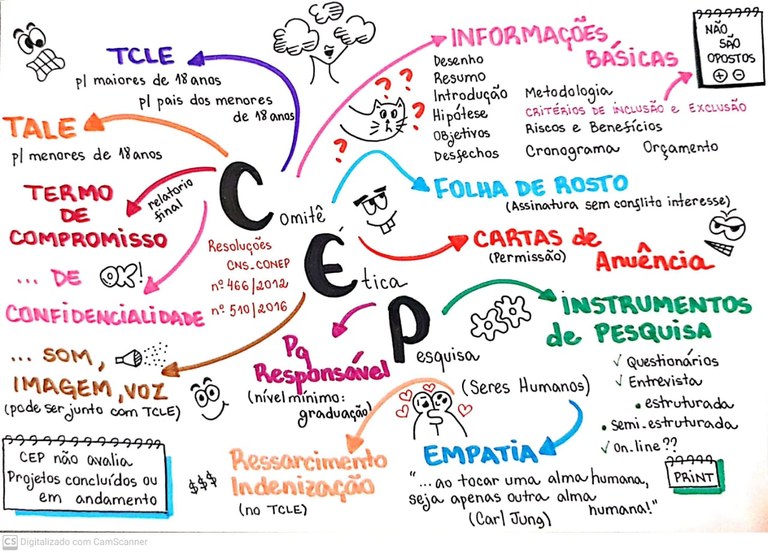 TCLE
p/ maiores de 18 anos
p/ pais dos menores
de 18 anos
TALE
p/ menores de 18 anos
TERMO
DE
COMPROMISSO
relatorio
final
... DE OK!
CONFIDENCIALIDADE
... SOM,
IMAGEM, VOZ
(pode ser junto com TCLE)
CEP não avalia
Projetos concluídos ou
em andamento
Comitê
Ética
Pesquisa
(Seres Humanos)
Resoluções
CNS_CONEP
nº 466/2012
nº 510/2016
Pq
Responsável
(nível mínimo:
graduação)
$$$
Ressarcimento
Indenização
(no TCLE)
INFORMAÇÕES
BÁSICAS
Desenho
Resumo
Introdução
Hipótese
Objetivos
Desfechos
Metodologia
CRITÉRIOS DE INCLUSÃO e EXCLUSÃO
Riscos e Benefícios
Cronograma Orçamento
NÃO
SÃO
OPOSTOS
+ -
? ? ? ? ?
FOLHA DE ROSTO
(Assinatura sem conflito interesse)
CARTAS de
(Permissão) Anuência
INSTRUMENTOS
de PESQUISA
✓ Questionários
✓ Entrevista
• estruturada
• semi-estruturada
✓ on.line ??
PRINT
EMPATIA
"...ao tocar uma alma humana,
seja apenas outra alma
humana!"
(Carl Jung)
CS Digitalizado com CamScanner